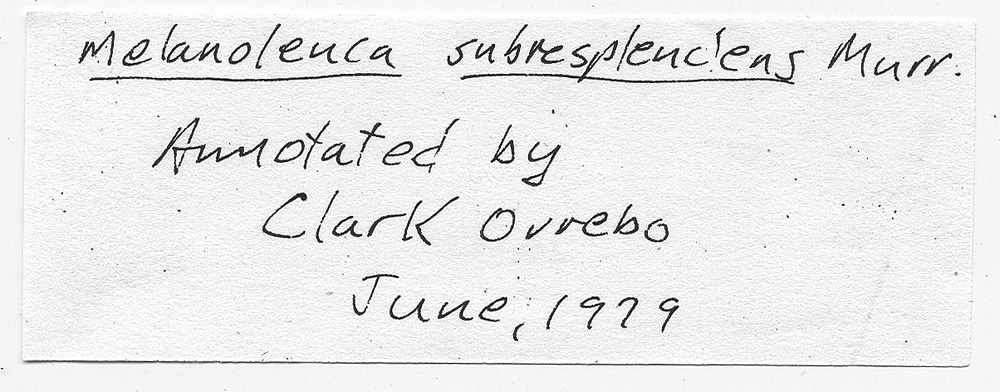 Melanoleuca subresplendens Murr.
Annotated by
Clark Ovrebo
June, 1979